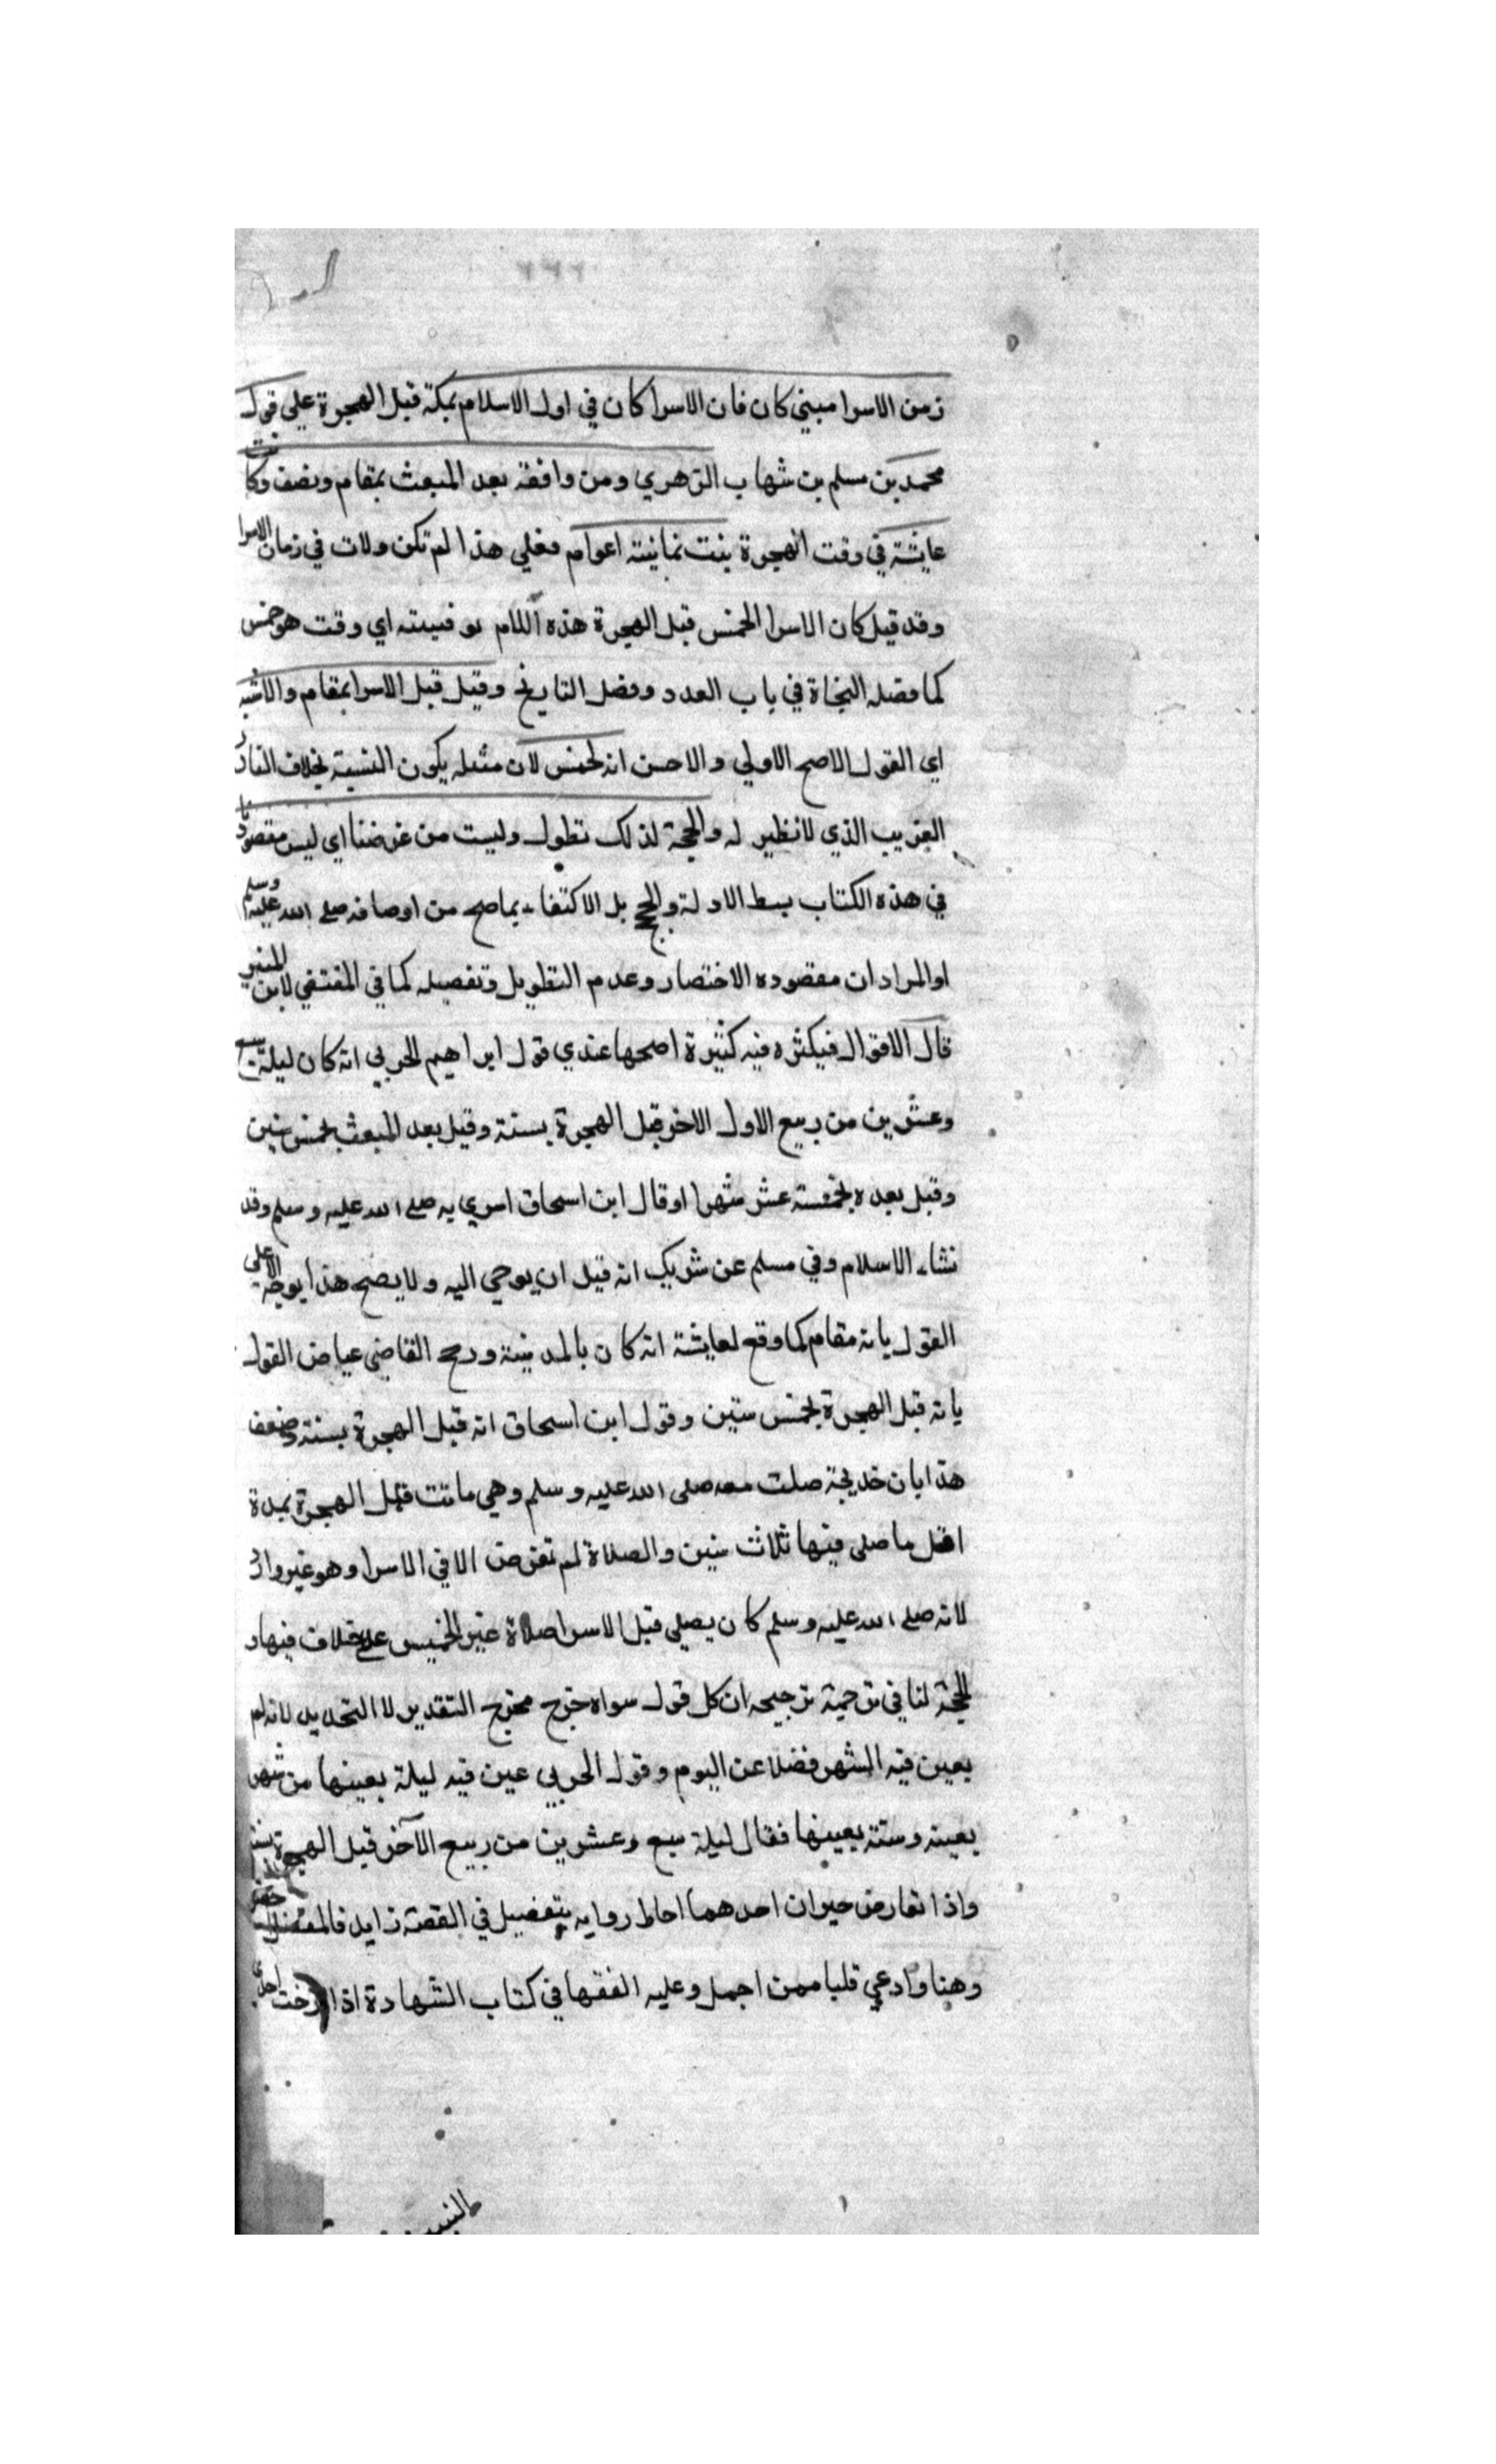 زمن الاسرا مبني كان فان الاسرا كان في اول الاسلام بمكة قبل الهجرة علي قول
محمد بن مسلم بن شهاب الزهري ومن وافقه بعد المبعث بمقام ونصف وكانت
عايشة في وقت الهجرة بنت ثمانية اعوام فعلي هذا لم تكن ولات في زمان الاسرا
وقد قيل كان الاسرا لخمس قبل الهجرة هذه اللام توقيته اي وقت هو خمس
كما فصله النحاة في باب العدد وفصل التاريخ وقيل قبل الاسرا بمقام والاشبه
اي القول الاصح الاولي والاحسن انه لخمس لان مثله يكون النسبة بخلاف النادر
الغريب الذي لا نظير له والحجة لذلك تطول وليست من غرضنا اي ليس مقصودنا
في هذه الكتاب بسط الادلة والحجج بل الاكتفاء بما صح من اوصافه صلي الله عليه وسلم
او المراد ان مقصوده الاختصار وعدم التطويل وتفصيله كما في المقتفي لابن المنير
قال الاقوال فيكثره فيه كثيرة اصحها عندي قول ابراهيم الحربي انه كان ليلة سبع
وعشرين من ربيع الاول الاخر قبل الهجرة بسنة وقيل بعد المبعث بخمس سنين
وقيل بعده بخمسة عشر شهرا او قال ابن اسحاق اسري به صلي الله عليه وسلم وقد
نشاء الاسلام وفي مسلم عن شريك انه قبل ان يوحي اليه ولا يصح هذا بوجه الا علي
القول بانه مقام كما وقع لعايشة انه كان بالمدينة ورجح القاضي عياض القول
بانه قبل الهجرة بخمس سنين وقول ابن اسحاق انه قبل الهجرة بسنة وضعف
هذا بان خديجة صلت معه صلى الله عليه وسلم وهي ماتت قبل الهجرة بمدة
اقل ما صلى فيها ثلاث سنين والصلاة لم تفرض الا في الاسرا وهو غير وارد
لانه صلي الله عليه وسلم كان يصلي قبل الاسرا صلاة غير الخميس علي خلاف فيها و
الحجة لنا في ترحمية ترجيحه ان كل قول سواه خرج مخرج التقدير لا التحديد لانه لم
يعين فيه الشهر فضلا عن اليوم وقول الحربي عين فيه ليلة بعينها من شهر
بعينه وسنة بعينها فقال ليلة سبع وعشرين من ربيع الآخر قبل الهجرة بسنة
واذا تعارض حبران احدهما احاط روايه بتفصيل في القصة زايد فالمفضل
وهنا وادعي قلبا ممن اجمل وعليه الفقها في كتاب الشهادة اذا ارخت احدي